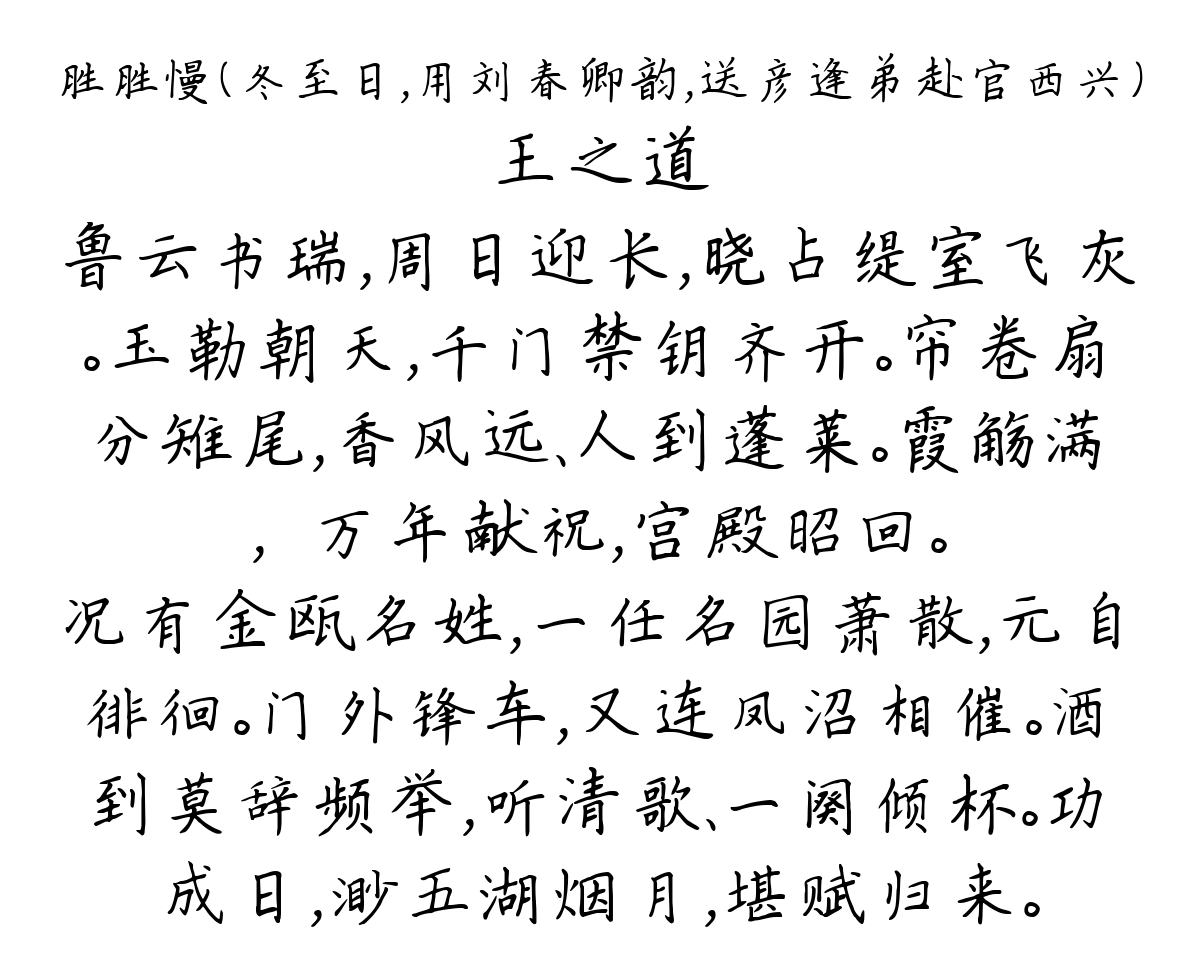 胜胜慢(冬至日,用刘春卿韵,送彦逢弟赴官西兴)
王之道
鲁云书瑞,周日迎长,晓占缇室飞灰
。玉勒朝天,千门禁钥齐开。帘卷扇
分雉尾,香风远、人到蓬莱。霞觞满
，万年献祝,宫殿昭回。
况有金瓯名姓,一任名园萧散,元自
徘徊。门外锋车,又连凤沼相催。酒
到莫辞频举,听清歌、一阕倾杯。功
成日,渺五湖烟月,堪赋归来。